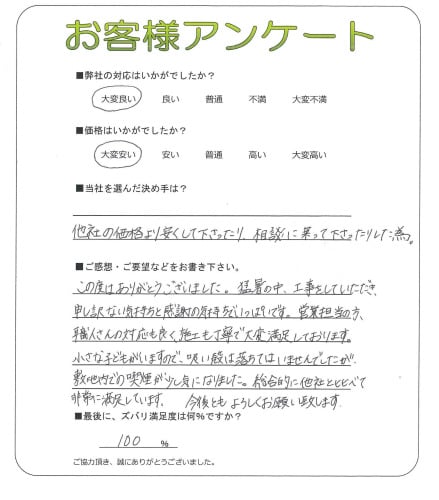 お客様アンケート
■弊社の対応はいかがでしたか？
大変良い 良い 普通 不満 大変不満
■価格はいかがでしたか？
大変安い 安い 普通 高い 大変高い
■当社を選んだ決め手は？
他社の価格より安くして下さったり、相談に乗って下さったりした為。
■ご感想・ご要望などをお書き下さい。
この度はありがとうございました。猛暑の中、工事をしていただき、
申し訳ない気持ちと感謝の気持ちでいっぱいです。営業担当の方、
職人さんの対応も良く、施工も丁寧で大変満足しております。
小さな子どもがいますので、吸い殻は落ちてはいませんでしたが
敷地内での喫煙が少し気になりました。総合的に他社とくらべて
非常に満足しています。 今後とも よろしくお願い致します。
■最後に、ズバリ満足度は何%ですか？
100 %
ご協力頂き、誠にありがとうございました。